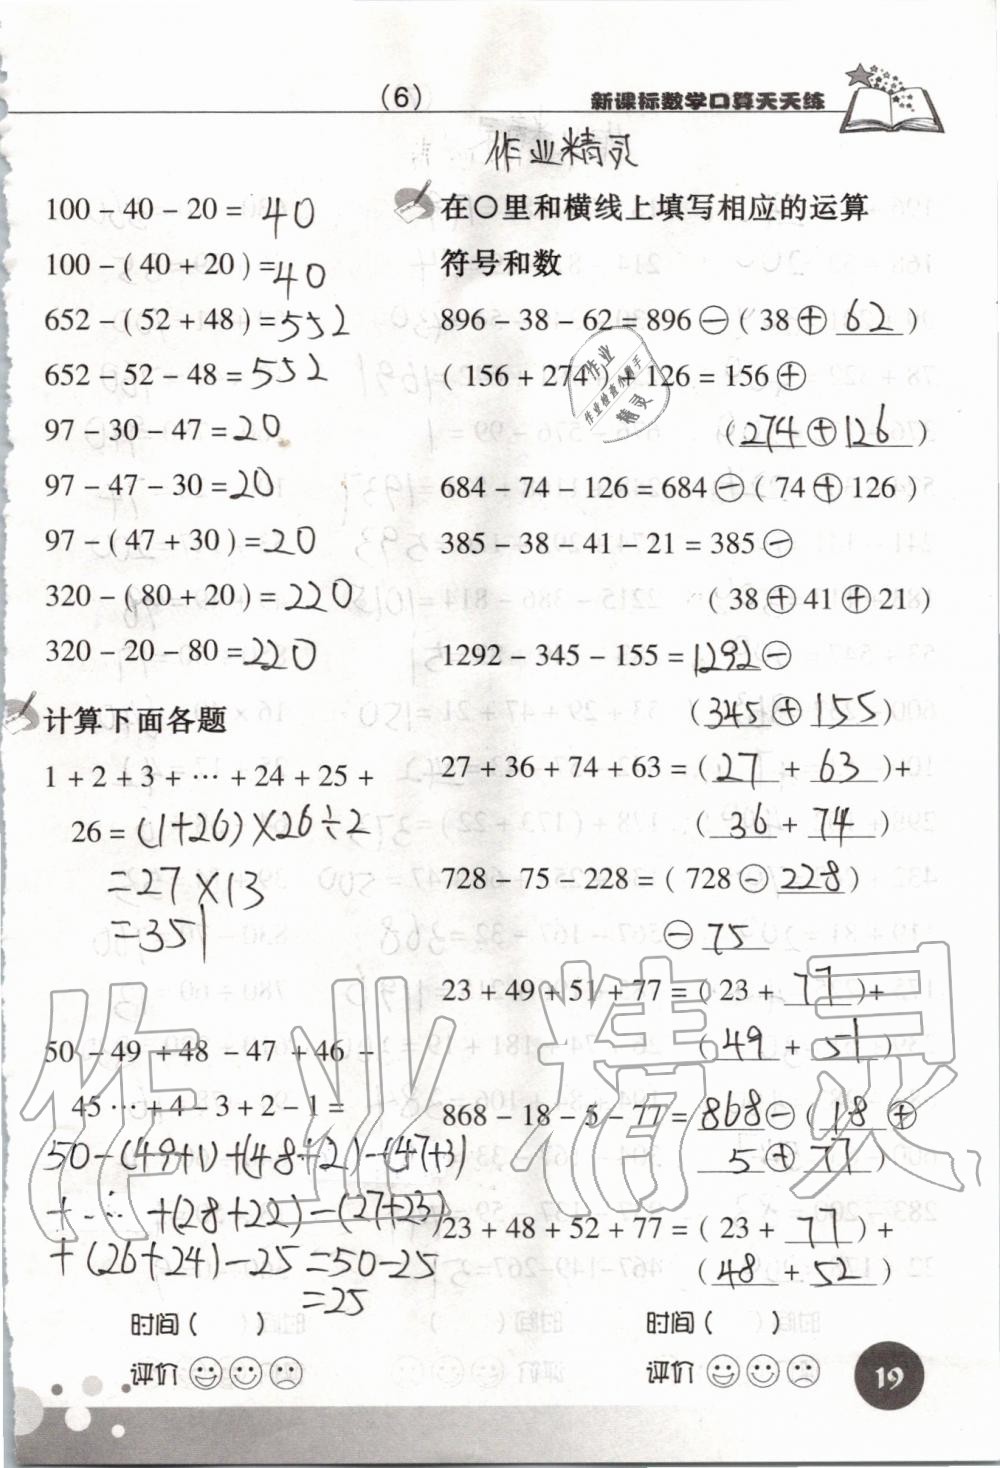 (6)
新课标数学口算天天练
作业精灵
100 - 40 - 20 = 40
100 - ( 40 + 20 ) = 40
652 - ( 52 + 48 ) = 552
652 - 52 - 48 = 552
97 - 30 - 47 = 20
97 - 47 - 30 = 20
97 - ( 47 + 30 ) = 20
320 - ( 80 + 20 ) = 220
320 - 20 - 80 = 220
计算下面各题
1 + 2 + 3 + … + 24 + 25 +
26 = (1+26)×26÷2
=27×13
=351
50 - 49 + 48 - 47 + 46 -
45 … + 4 - 3 + 2 - 1 =
50-(49+1)+(48+2)-(47+3)
+…+(28+22)-(27+23)
+(26+24)-25=50-25
=25
时间 (    )
评价
在○里和横线上填写相应的运算
符号和数
896 - 38 - 62 = 896 ⊖ ( 38 ⊕ 62 )
( 156 + 274 ) + 126 = 156 ⊕
( 274 ⊕ 126 )
684 - 74 - 126 = 684 ⊖ ( 74 ⊕ 126 )
385 - 38 - 41 - 21 = 385 ⊖
( 38 ⊕ 41 ⊕ 21 )
1292 - 345 - 155 = 1292 ⊖
( 345 ⊕ 155 )
27 + 36 + 74 + 63 = ( 27 + 63 ) +
( 36 + 74 )
728 - 75 - 228 = ( 728 ⊖ 228 )
⊖ 75
23 + 49 + 51 + 77 = ( 23 + 77 ) +
( 49 + 51 )
868 - 18 - 5 - 77 = 868 ⊖ ( 18 ⊕
5 ⊕ 77 )
23 + 48 + 52 + 77 = ( 23 + 77 ) +
( 48 + 52 )
时间 (    )
评价
19
作业
作业检查小助手
精灵
作业精灵